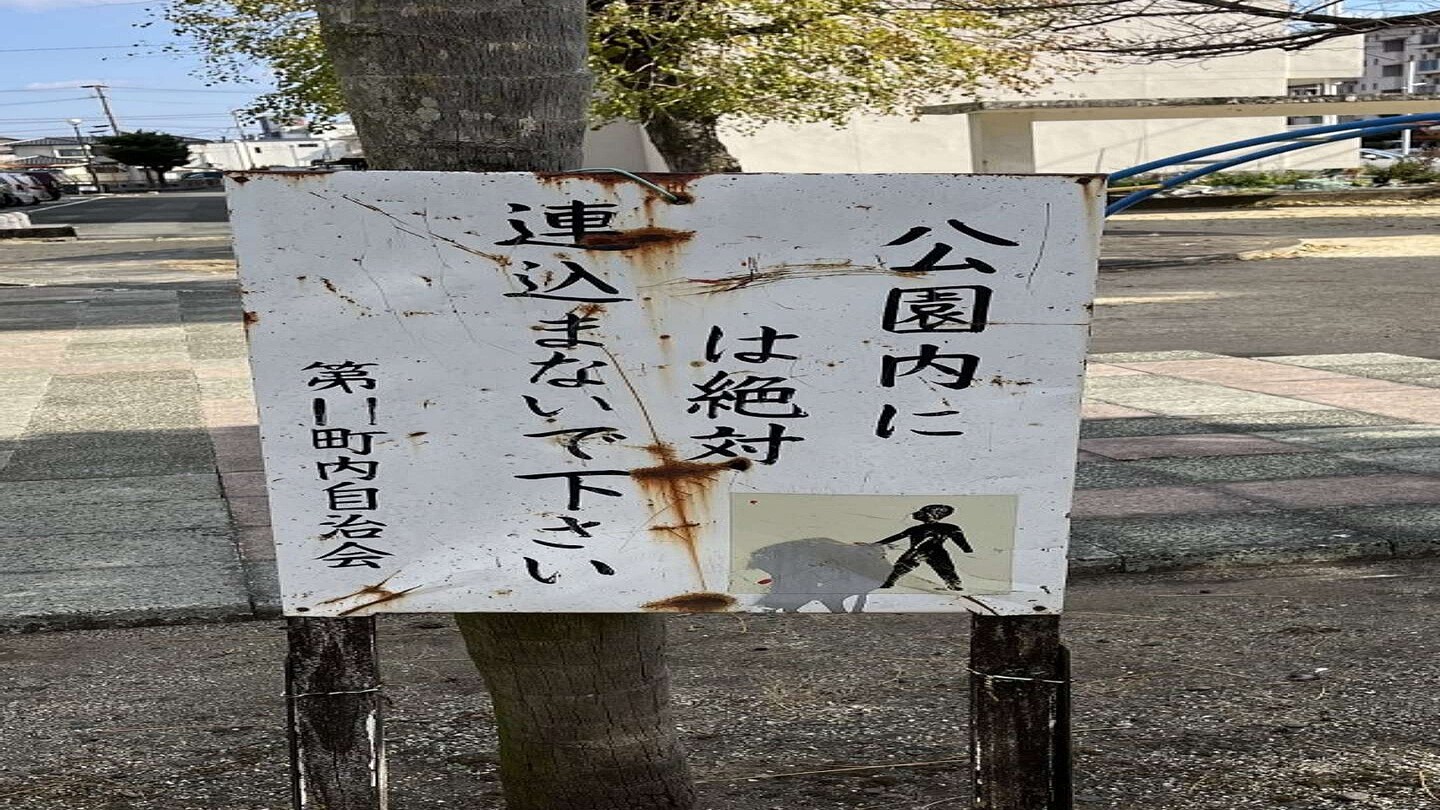 公園内に
は絶対
連込まないで下さい
第11町内自治会